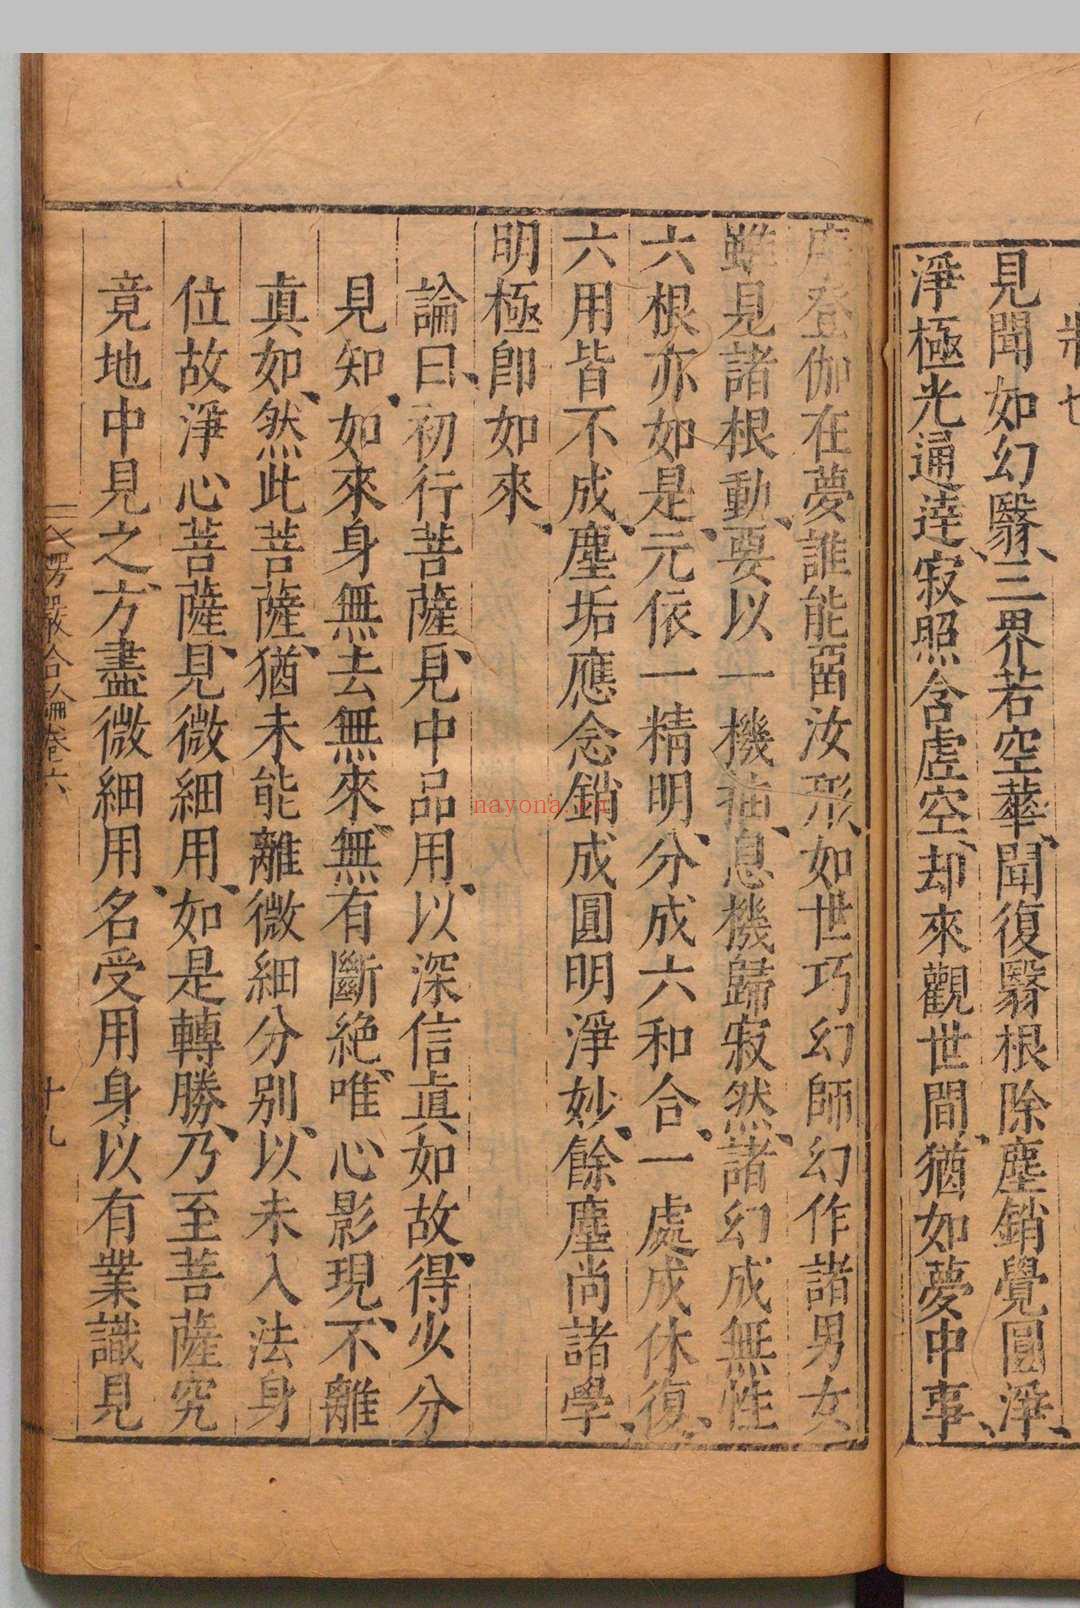 見聞如幻翳、三界若空華、聞復翳根除、塵銷覺圓淨、
淨極光通達、寂照含虛空、却來觀世間、猶如夢中事、
摩登伽在夢、誰能畱汝形、如世巧幻師、幻作諸男女
雖見諸根動、要以一機抽、息機歸寂然、諸幻成無性
六根亦如是、元依一精明、分成六和合、一處成休復、
六用皆不成、塵垢應念銷、成圓明淨妙、餘塵尚諸學、
明極卽如來、
論曰、初行菩薩、見中品用、以深信眞如故、得少分
見知、如來身無去無來、無有斷絶、唯心影現、不離
眞如、然此菩薩、猶未能離微細分别、以未入法身
位故、淨心菩薩、見微細用、如是轉勝、乃至菩薩究
竟地中見之、方盡微細用、名受用身、以有業識見
楞嚴合論卷六
十九
nayona.cn